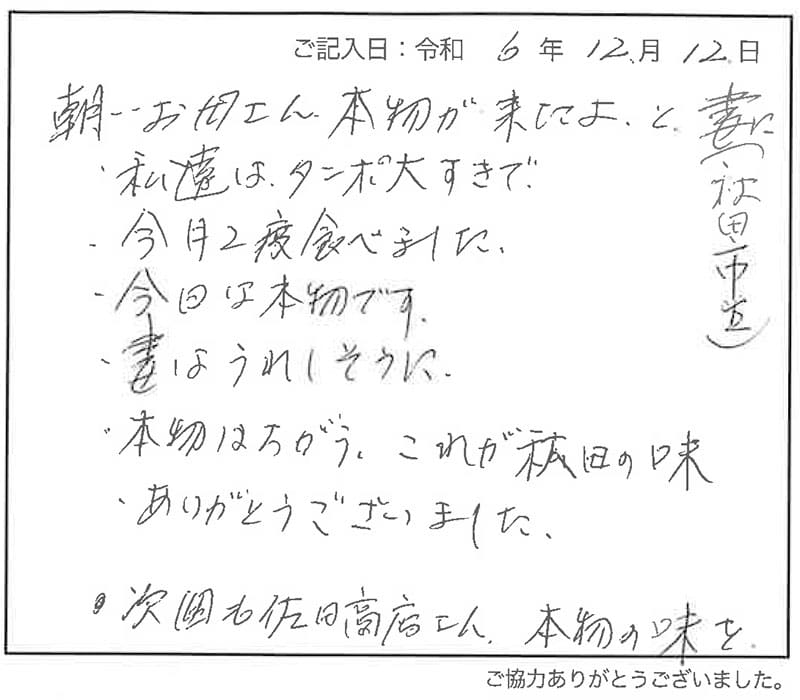 ご記入日：令和 6 年 12 月 12 日
朝一お母さん 本物が来たよ、と 妻に
・私達は、タンポ大すきで
・今月2度食べました、
・今回は本物です。
・妻はうれしそうに、
・本物はちがう、これが秋田の味
・ありがとうございました、
・次回も佐田商店さん、本物の味を
ご協力ありがとうございました。